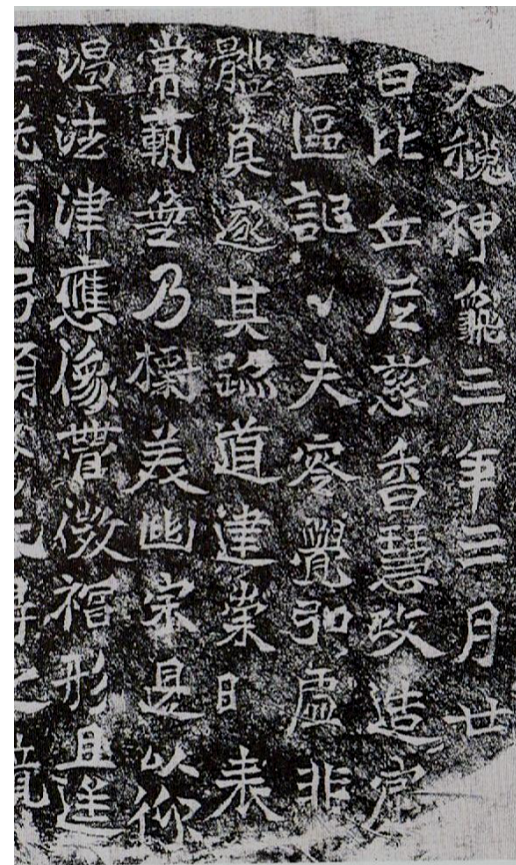 大魏神龜三年三月廿
日比丘尼慈香慧政造窟
一區記〻夫零覺弘虛非
體真邃其跡道建崇日表
常範無乃標美幽宗是以仰
渴法津應像營微福形且遙
生願之境